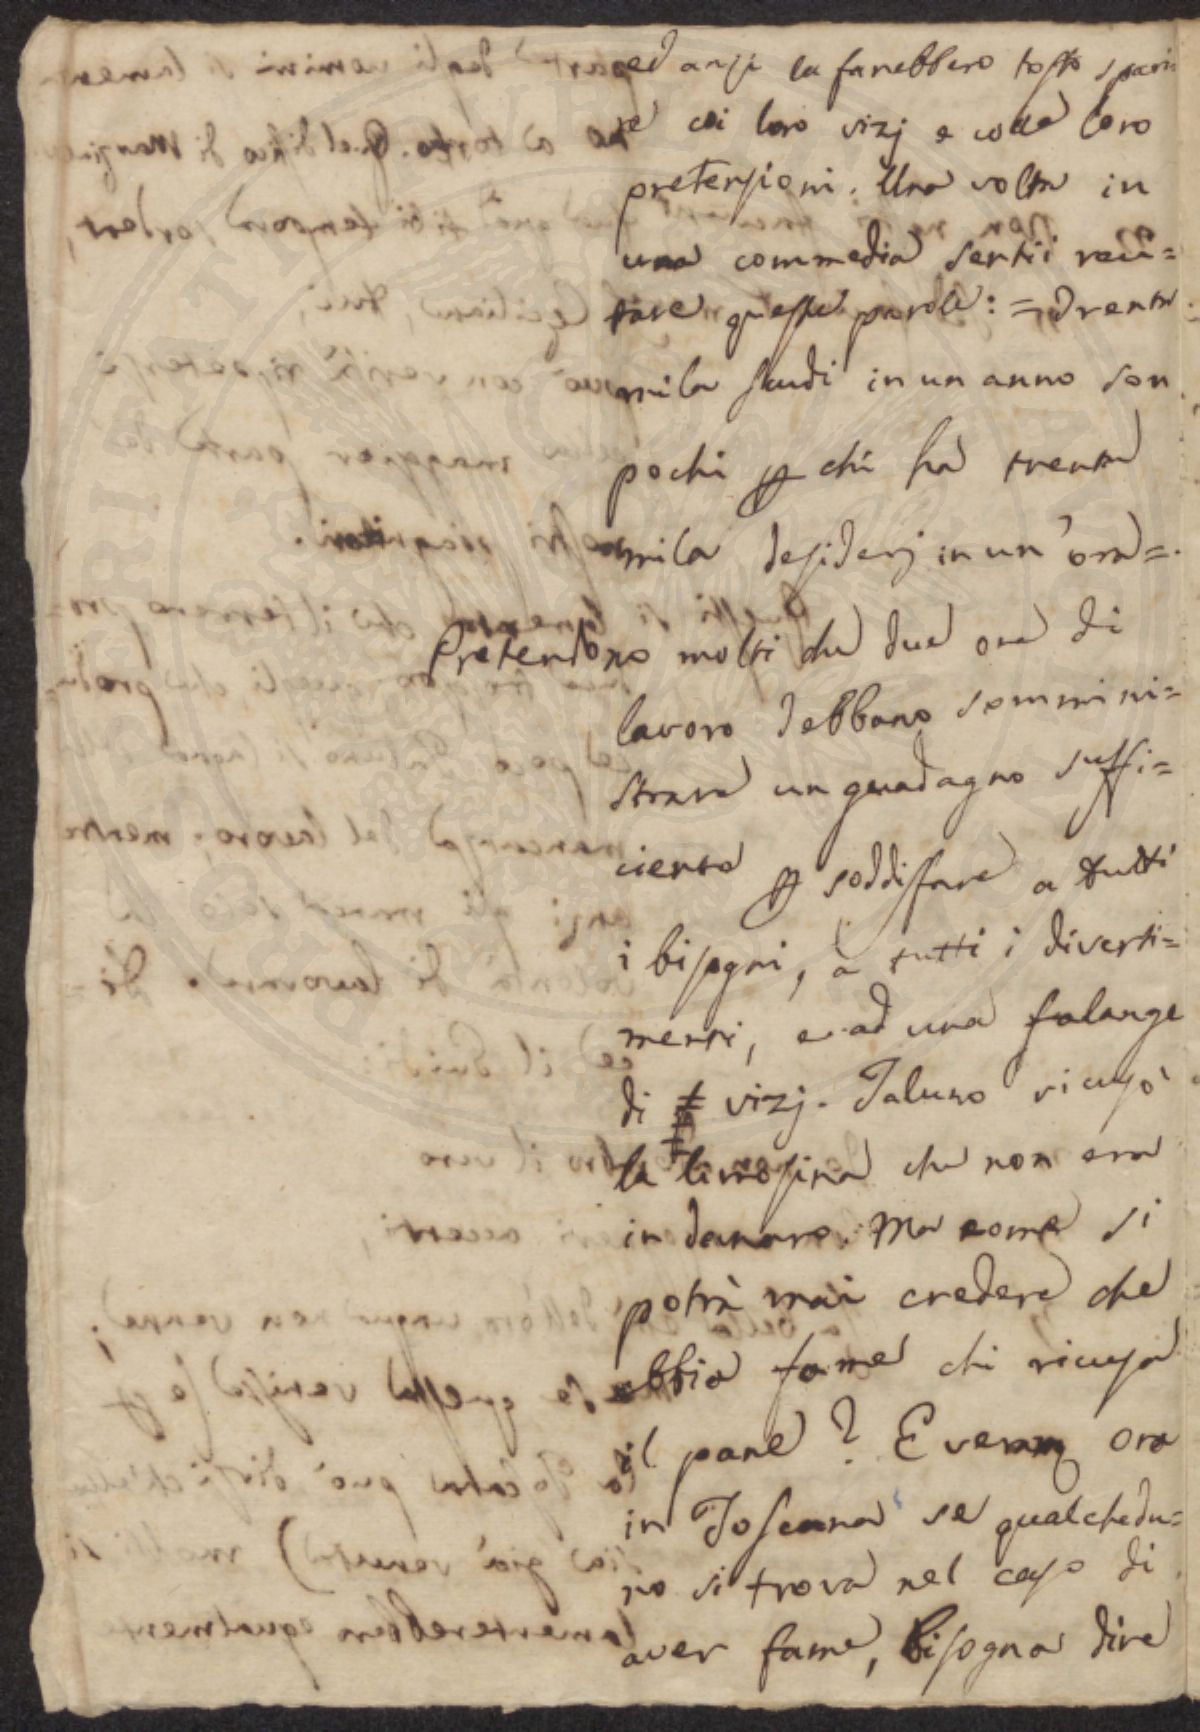 ed anzi la farebbero tosto spari=
re coi loro vizj e colle loro
pretensioni. Una volta in
una commedia sentii reci=
tare queste parole: = Trenta
mila scudi in un anno son
pochi p chi ha trenta
mila desiderj in un'ora =.
Pretendono molti che due ore di
lavoro debbano sommini=
strare un guadagno suffi=
ciente p soddisfare a tutti
i bisogni, a tutti i diverti=
menti, e ad una falange
di vizj. Taluno ricusò
la limosina che non era
in danaro. Ma come si
potrà mai credere che
abbia fame chi ricusa
il pane? E veramte ora
in Toscana se qualchedu=
no si trova nel caso di
aver fame, bisogna dire